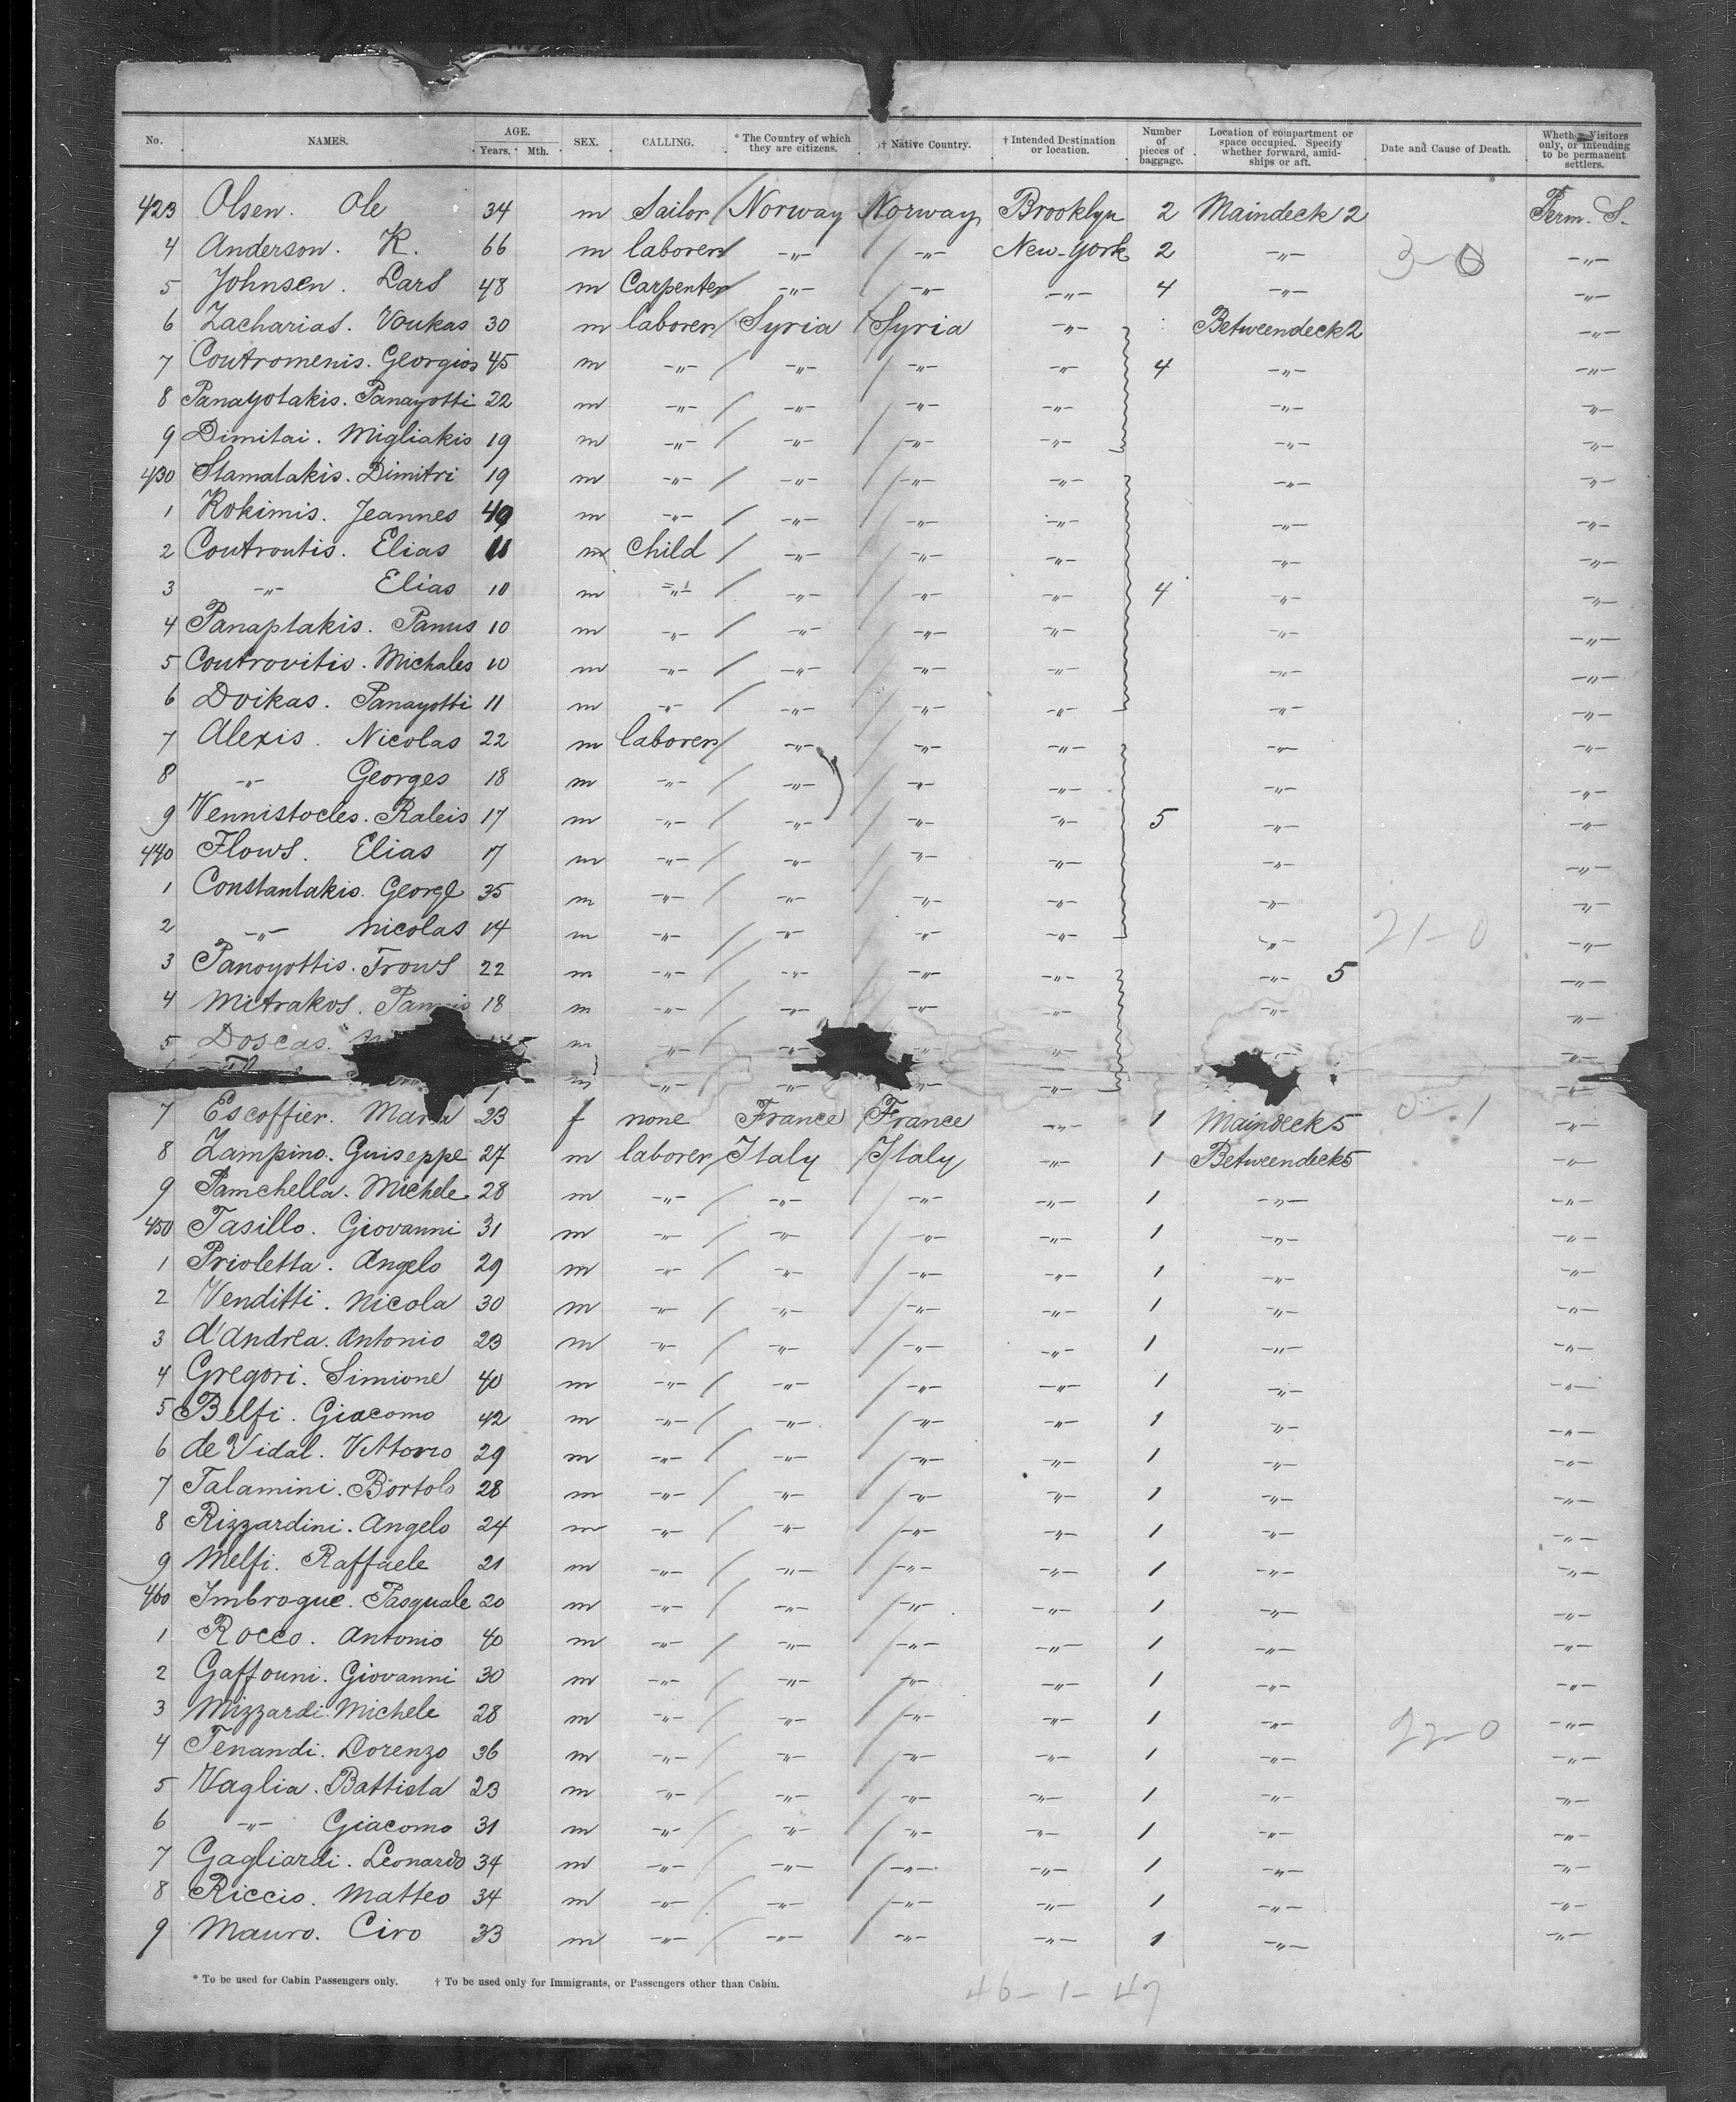 No. NAMES. AGE. Years. Mth. SEX. CALLING. * The Country of which they are citizens. † Native Country. † Intended Destination or location. Number of pieces of baggage. Location of compartment or space occupied. Specify whether forward, amidships or aft. Date and Cause of Death. Whether Visitors only, or intending to be permanent settlers.
423 Olsen. Ole 34 m Sailor Norway Norway Brooklyn 2 Maindeck 2 Perm. S.
4 Anderson. K. 66 m laborer -"- -"- New-York 2 -"- 3-0 -"-
5 Johnsen. Lars 48 m Carpenter -"- -"- -"- 4 -"- -"-
6 Zacharias. Voukas 30 m laborer Syria Syria -"- Betweendeck 2 -"-
7 Coutromenis. Georgios 45 m -"- -"- -"- -"- 4 -"- -"-
8 Panayotakis. Panayotti 22 m -"- -"- -"- -"- -"- -"-
9 Dimitai. Migliakis 19 m -"- -"- -"- -"- -"- -"-
430 Stamatakis. Dimitri 19 m -"- -"- -"- -"- -"- -"-
1 Kokimis. Jeannes 49 m -"- -"- -"- -"- -"- -"-
2 Coutroutis. Elias 11 m Child -"- -"- -"- -"- -"-
3 -"- Elias 10 m -"- -"- -"- -"- 4 -"- -"-
4 Panaptakis. Panus 10 m -"- -"- -"- -"- -"- -"-
5 Coutrovitis. Michales 10 m -"- -"- -"- -"- -"- -"-
6 Dvikas. Panayotti 11 m -"- -"- -"- -"- -"- -"-
7 Alexis. Nicolas 22 m laborer -"- -"- -"- -"- -"-
8 -"- Georges 18 m -"- -"- -"- -"- -"- -"-
9 Vennistocles. Raleis 17 m -"- -"- -"- -"- 5 -"- -"-
440 Flows. Elias 17 m -"- -"- -"- -"- -"- -"-
1 Constantakis. George 35 m -"- -"- -"- -"- -"- -"-
2 -"- Nicolas 14 m -"- -"- -"- -"- -"- 21-0 -"-
3 Panoyottis. Trows 22 m -"- -"- -"- -"- -"- 5 -"-
4 Mitrakos. 18 m -"- -"- -"- -"- -"- -"-
5 Doscas. m -"- -"- -"- -"- -"- -"-
m -"- -"- -"- -"- -"-
7 Escoffier. Maria 23 f none France France -"- 1 Maindeck 5 0-1 -"-
8 Zampino. Guiseppe 27 m laborer Italy Italy -"- 1 Betweendeck 5 -"-
9 Pamchella. Michele 28 m -"- -"- -"- -"- 1 -"- -"-
450 Tasillo. Giovanni 31 m -"- -"- -"- -"- 1 -"- -"-
1 Prioletta. Angelo 29 m -"- -"- -"- -"- 1 -"- -"-
2 Venditti. Nicola 30 m -"- -"- -"- -"- 1 -"- -"-
3 d'Andrea. Antonio 23 m -"- -"- -"- -"- 1 -"- -"-
4 Gregori. Simione 40 m -"- -"- -"- -"- 1 -"- -"-
5 Belfi. Giacomo 42 m -"- -"- -"- -"- 1 -"- -"-
6 de Vidal. Vittorio 29 m -"- -"- -"- -"- 1 -"- -"-
7 Talamini. Bortolo 28 m -"- -"- -"- -"- 1 -"- -"-
8 Rizzardini. Angelo 24 m -"- -"- -"- -"- 1 -"- -"-
9 Melfi. Raffaele 21 m -"- -"- -"- -"- 1 -"- -"-
460 Imbrogue. Pasquale 20 m -"- -"- -"- -"- 1 -"- -"-
1 Rocco. Antonio 40 m -"- -"- -"- -"- 1 -"- -"-
2 Gaffouni. Giovanni 30 m -"- -"- -"- -"- 1 -"- -"-
3 Mizzardi. Michele 28 m -"- -"- -"- -"- 1 -"- -"-
4 Tenandi. Lorenzo 36 m -"- -"- -"- -"- 1 -"- 22-0 -"-
5 Vaglia. Battista 23 m -"- -"- -"- -"- 1 -"- -"-
6 -"- Giacomo 31 m -"- -"- -"- -"- 1 -"- -"-
7 Gagliardi. Leonardo 34 m -"- -"- -"- -"- 1 -"- -"-
8 Riccio. Matteo 34 m -"- -"- -"- -"- 1 -"- -"-
9 Mauro. Ciro 33 m -"- -"- -"- -"- 1 -"- -"-
* To be used for Cabin Passengers only. † To be used only for Immigrants, or Passengers other than Cabin.
46-1-47